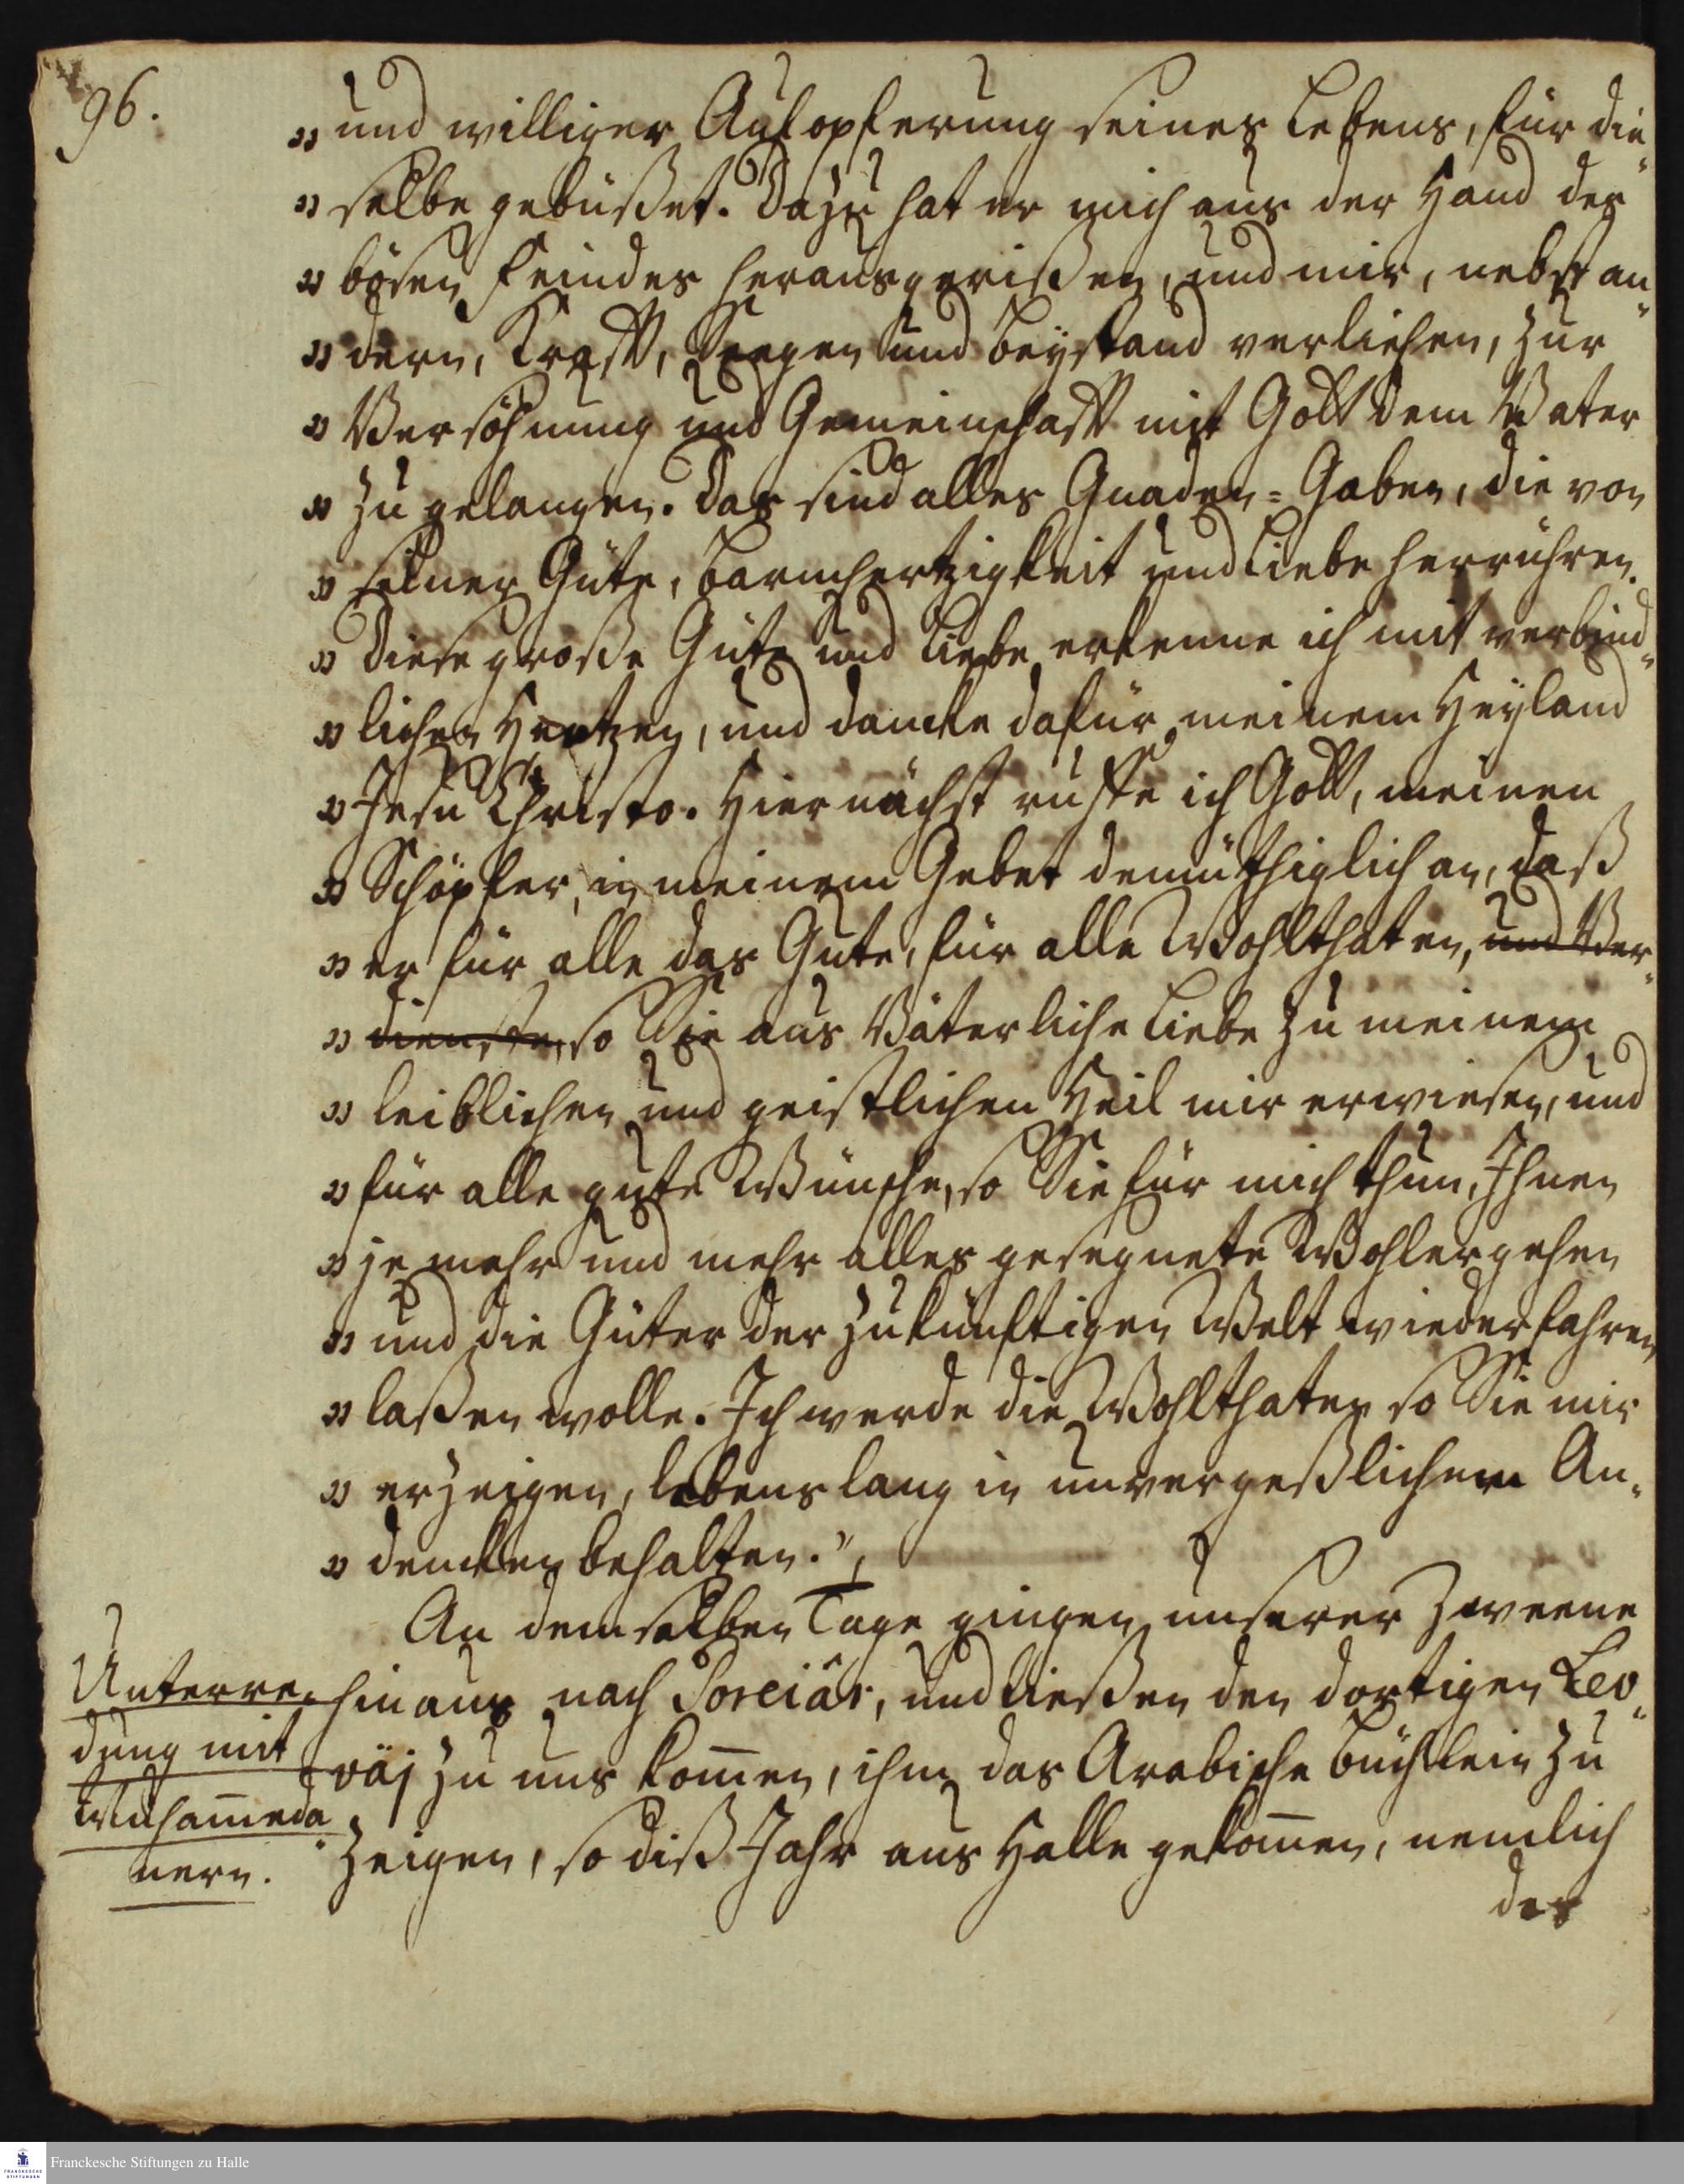 96.
„ und williger Aufopferung seines Lebens, für die„
„ selbe gebüßet. Dazu hat er mich aus der Hand des
„ bösen Feindes herausgerißen, und mir, nebst an„
„ dern, Krafft, Seegen und Beystand verliehen, zur
„ Versöhnung und Gemeinschafft mit Gott dem Vater
„ zu gelangen. Das sind alles Gnaden=Gaben, die von
„ seiner Güte, Barmhertzigkeit und Liebe herrühren.
„ Diese große Güte und Liebe erkenne ich mit verbind„
„ lichen Hertzen, und dancke dafür meinem Heyland
„ Jesu Christo. Hiernächst ruffe ich Gott, meinen
„ Schöpfer, in meinem Gebet demüthiglich an, daß
„ er für alle das Gute, für alle Wohlthaten, und Ver„
„ dienste, so Sie aus Väterliche Liebe zu meinem
„ leiblichen und geistlichen Heil mir erwiesen, und
„ für alle gute Wünsche, so Sie für mich thun, Ihnen
„ je mehr und mehr alles gesegnete Wohlergehen
„ und die Güter der zukünftigen Welt wiederfahren
„ laßen wolle. Ich werde die Wohlthaten so Sie mir
„ erzeigen, lebenslang in unvergeßlichem An„
„ dencken behalten.“
An demselben Tage gingen unserer Zweene
hinaus nach Poreiâr, und ließen den dortigen Lev„
väj zu uns kom̅en, ihm das Arabische Büchlein zu
zeigen, so diß Jahr aus Halle gekom̅en, nemlich
des
Unterre„
dung mit
Muham̅eda„
nern.
Franckesche Stiftungen zu Halle